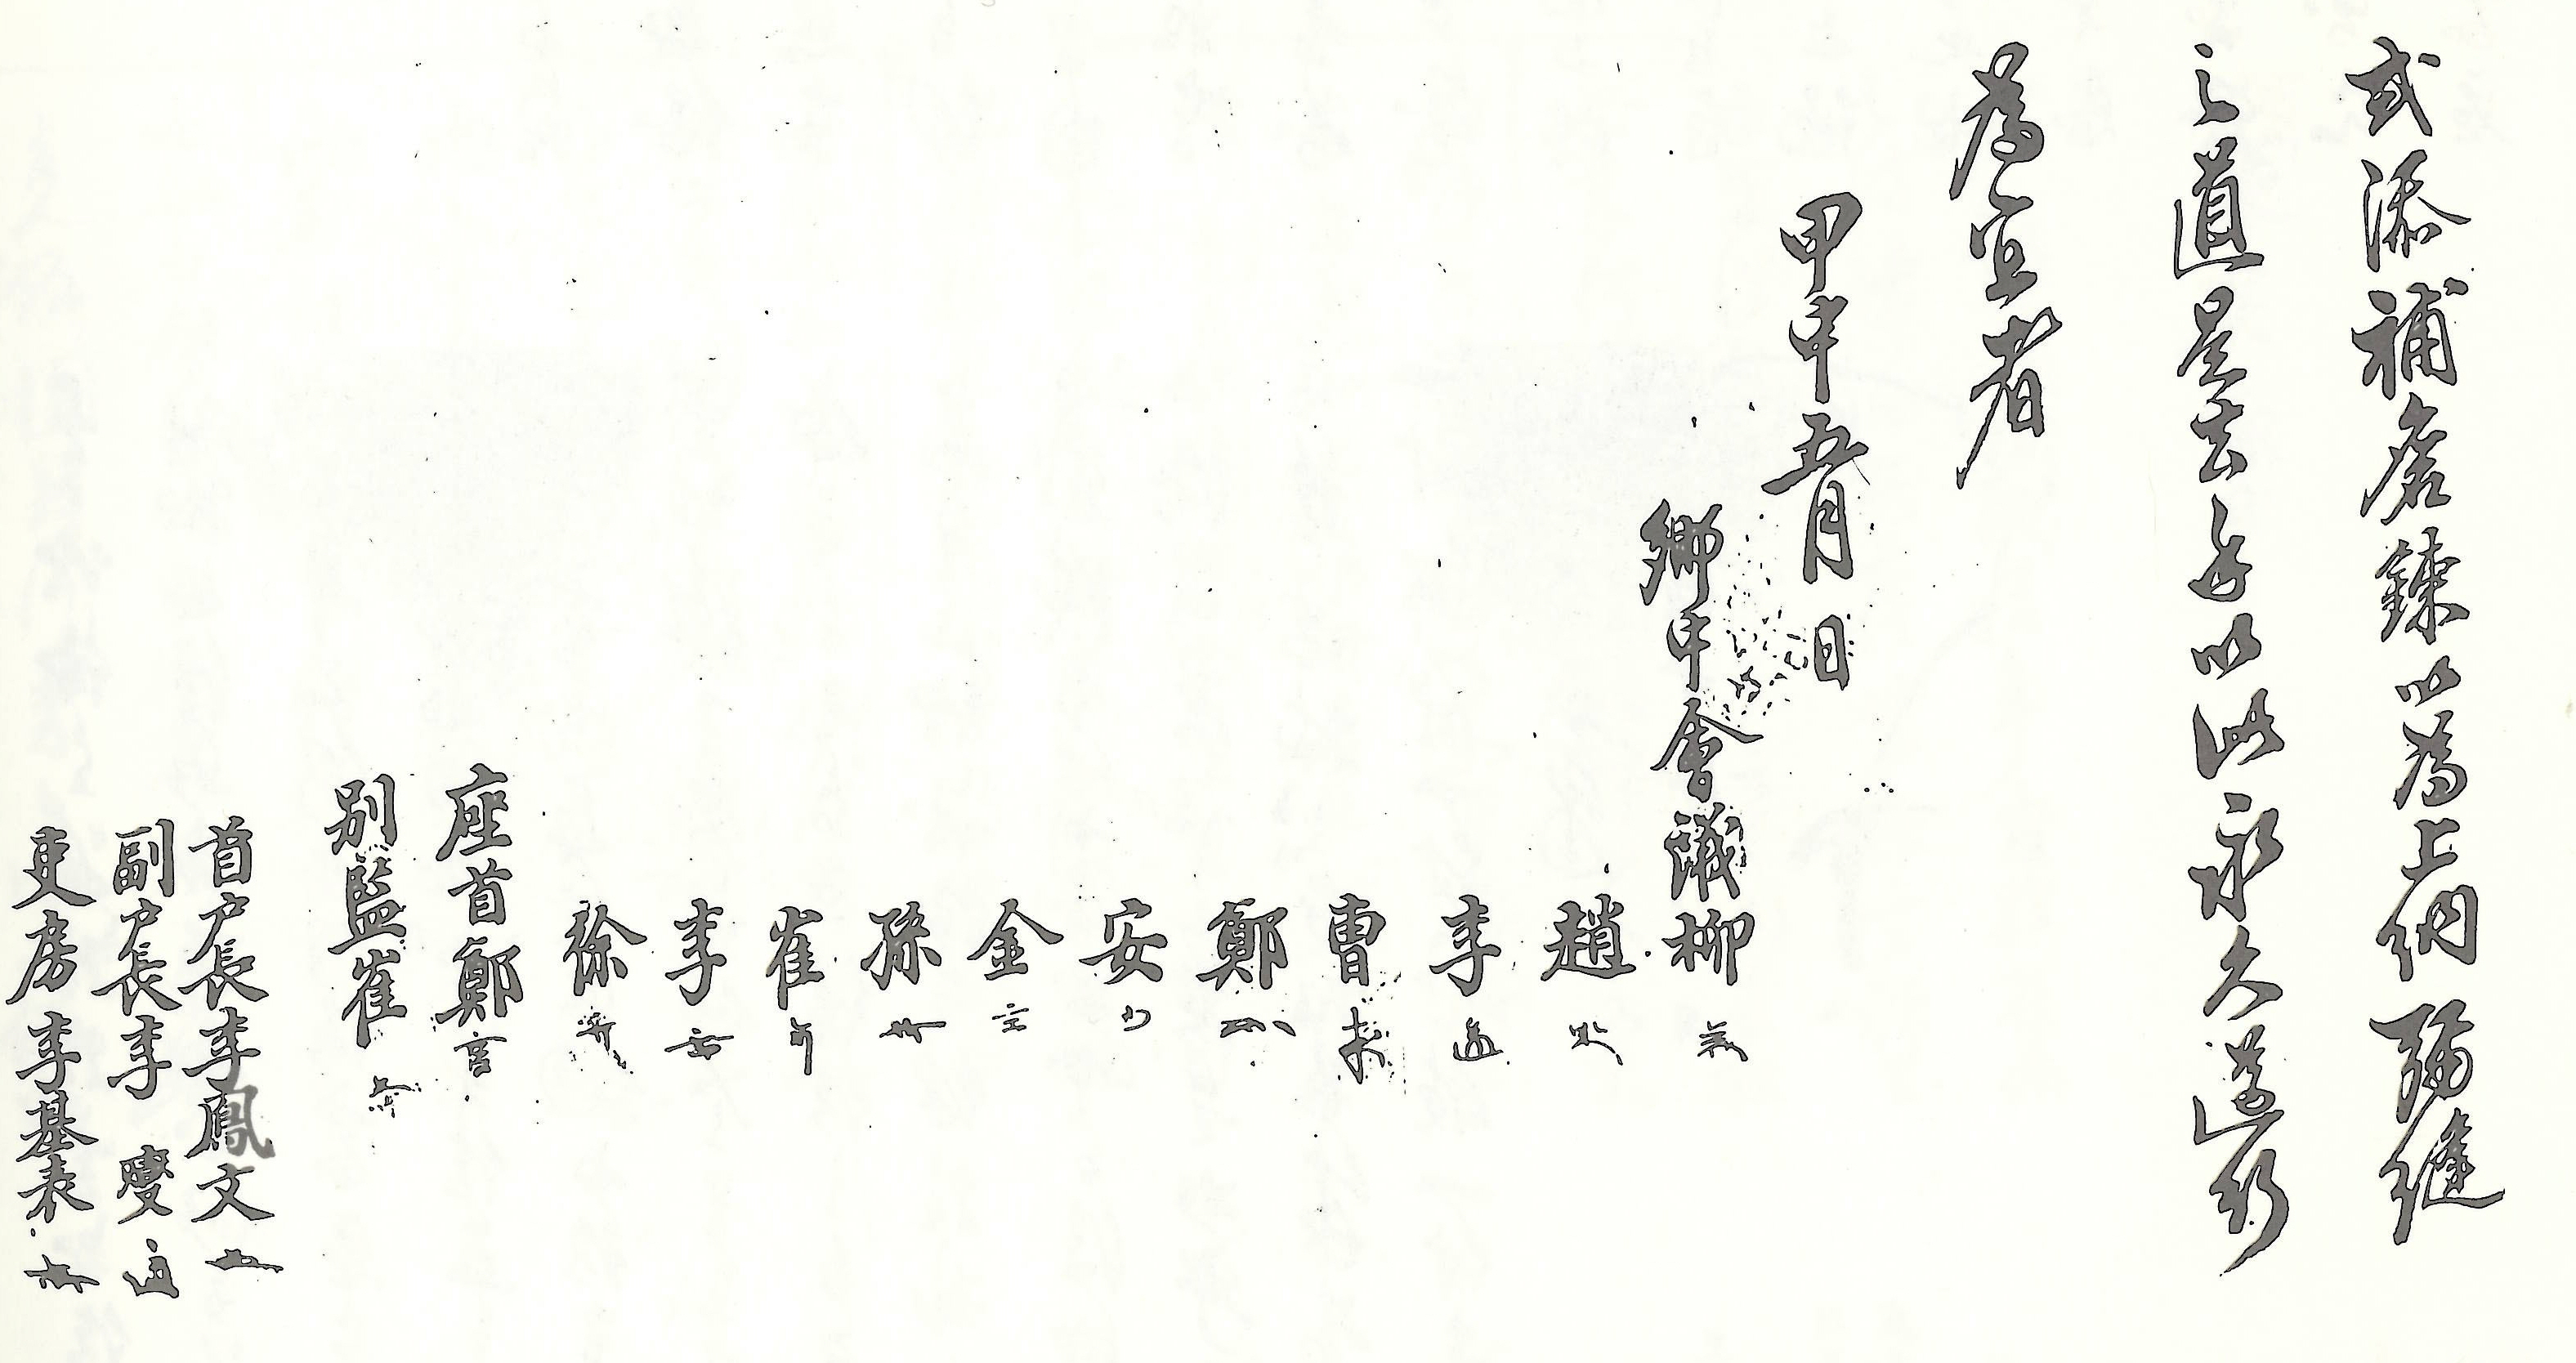 或添補磨鍊以爲上納彌縫
之道是去乎以此永久遵行
爲宜者
甲申五月 日
鄕中會議柳
趙
李
曺
鄭
安
金
孫
崔
李
徐
座首鄭
別監崔
首戶長李鳳文
副戶長李 燮
吏房李基表